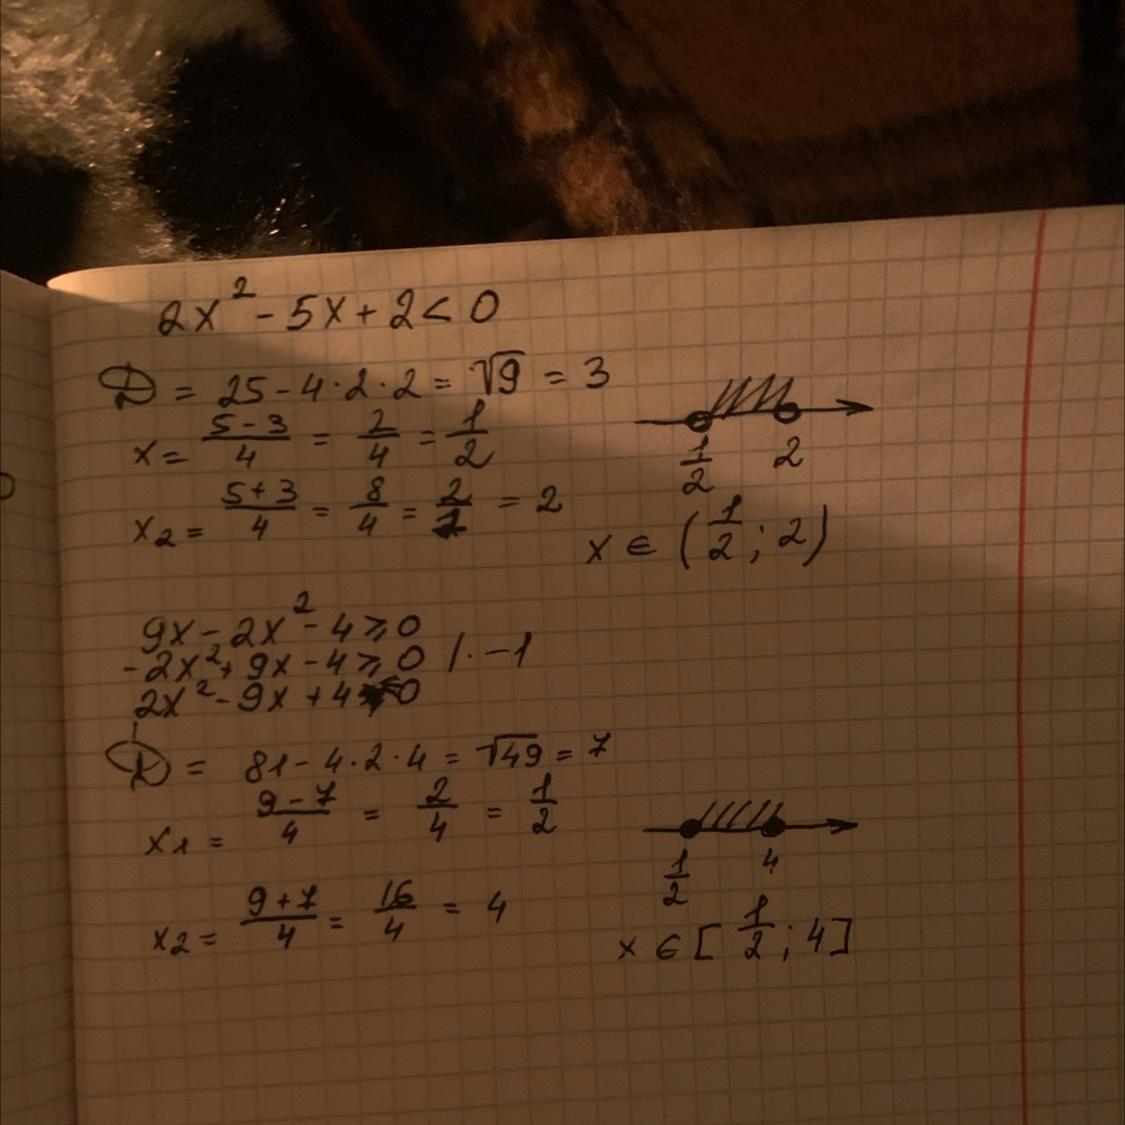 2x² - 5x + 2 < 0
D = 25 - 4 · 2 · 2 = √9 = 3
x = (5 - 3)/4 = 2/4 = 1/2
x₂ = (5 + 3)/4 = 8/4 = 2/1 = 2
1/2 2
x ∈ (1/2; 2)
9x - 2x² - 4 ⩾ 0
-2x² + 9x - 4 ⩾ 0 / · -1
2x² - 9x + 4 ⩽ 0
D = 81 - 4 · 2 · 4 = √49 = 7
x₁ = (9 - 7)/4 = 2/4 = 1/2
1/2 4
x₂ = (9 + 7)/4 = 16/4 = 4
x ∈ [1/2; 4]